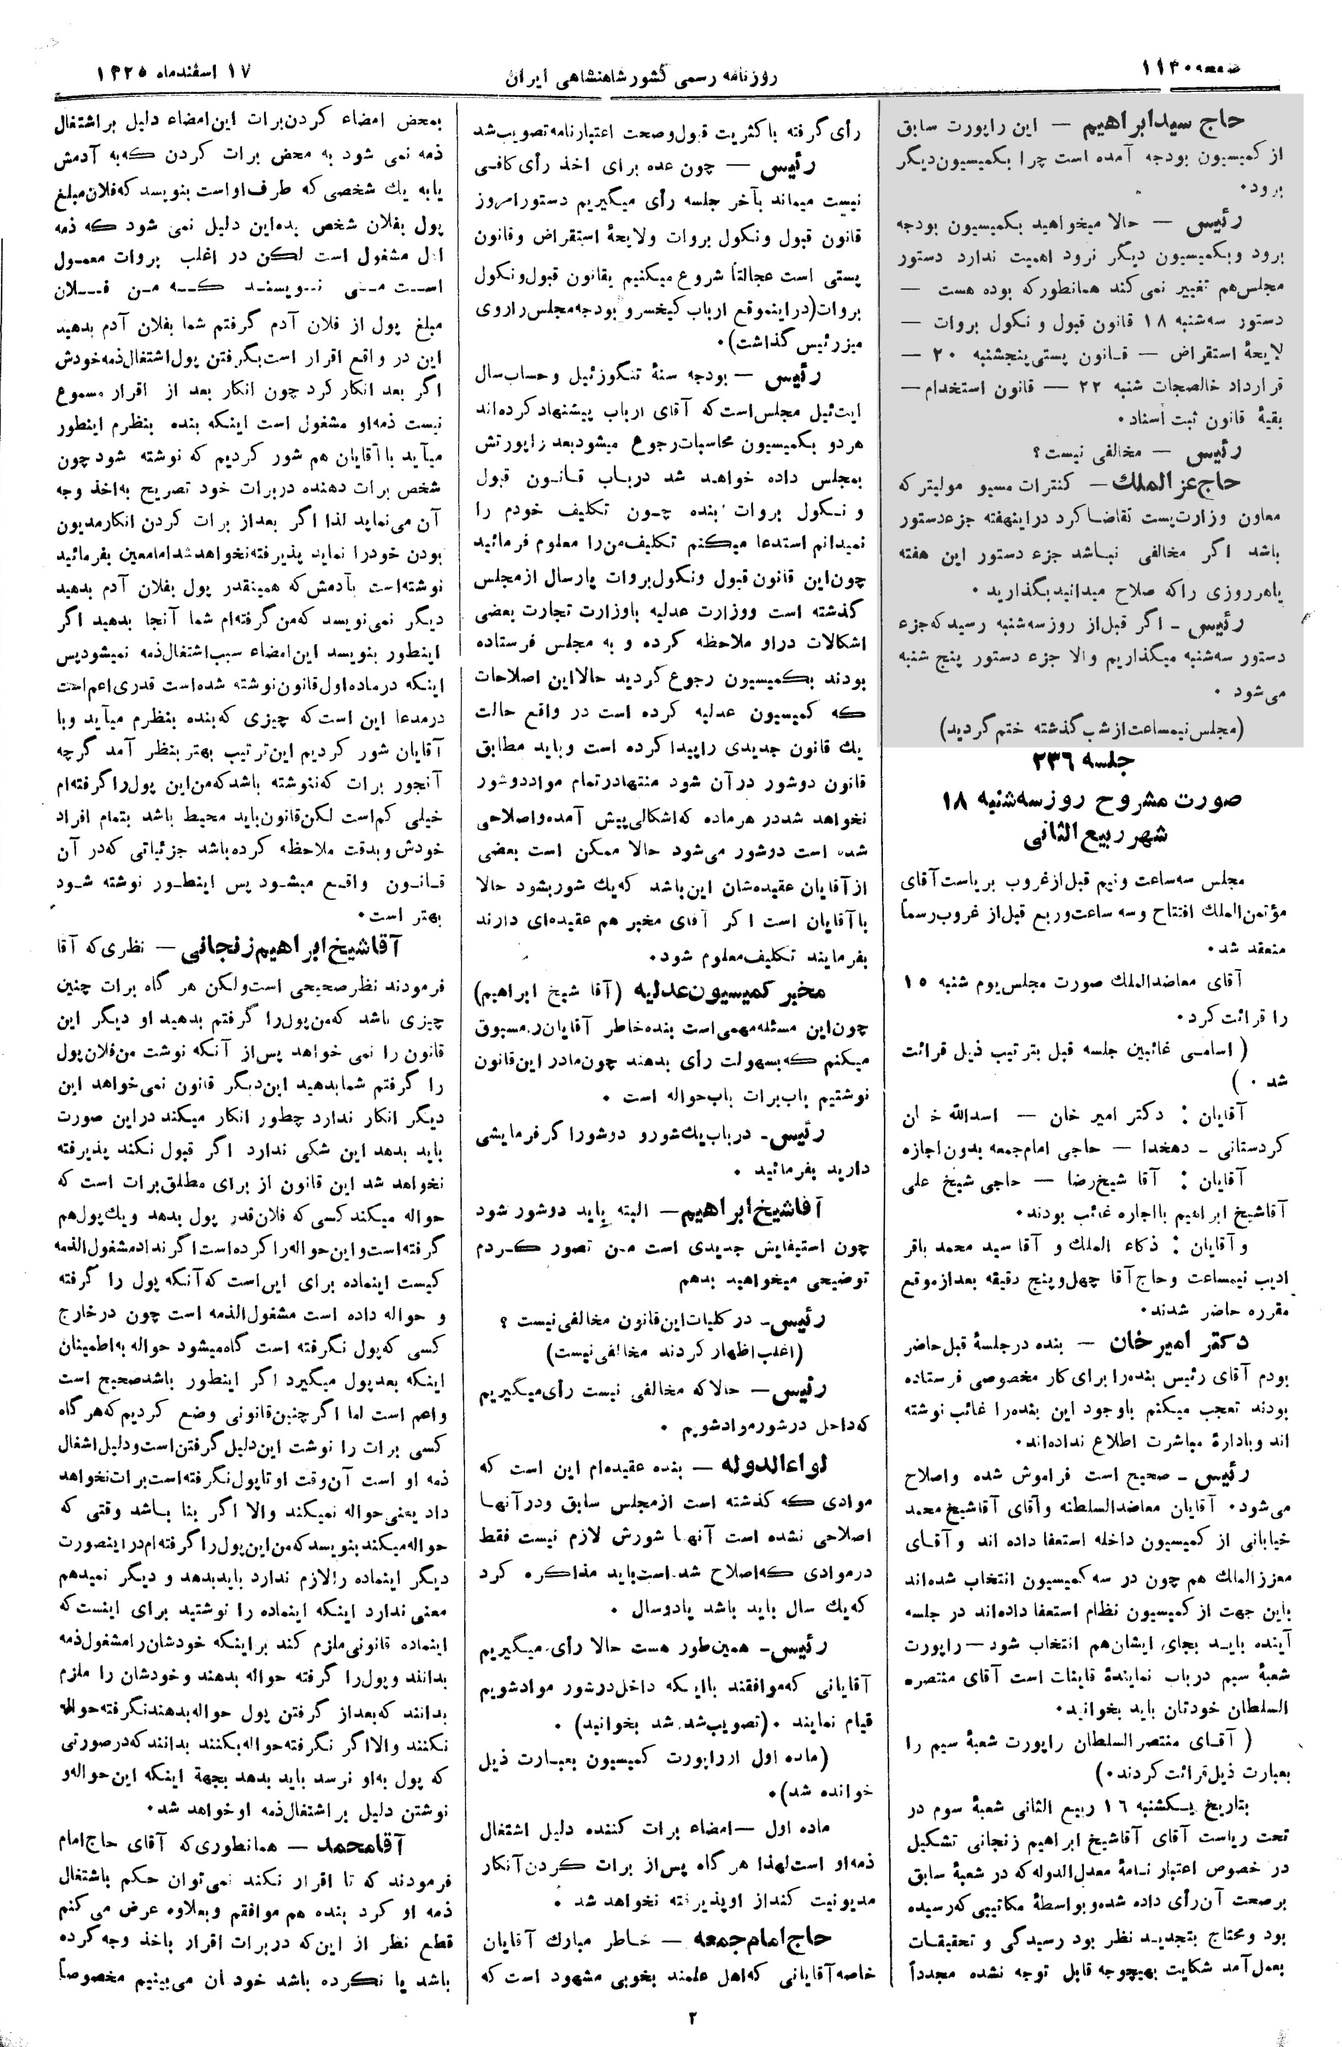 صفحه ۱۱۳۰
روزنامه رسمی کشور شاهنشاهی ایران
۱۷ اسفندماه ۱۳۲۵
حاج سید ابراهیم — این راپورت سابق
از کمیسیون بودجه آمده است چرا بکمیسیون دیگر
برود.
رئیس — حالا میخواهید بکمیسیون بودجه
برود و بکمیسیون دیگر نرود اهمیت ندارد دستور
مجلس هم تغییر نمی کند همانطور که بوده هست —
دستور سه شنبه ۱۸ قانون قبول و نکول بروات —
لایحهٔ استقراض — قانون پستی پنجشنبه ۲۰ —
قرارداد خالصجات شنبه ۲۲ — قانون استخدام —
بقیهٔ قانون ثبت اسناد.
رئیس — مخالفی نیست؟
حاج عز الملك — کنترات مسیو مولیتر که
معاون وزارت پست تقاضا کرد در اینهفته جزء دستور
باشد اگر مخالفی نباشد جزء دستور این هفته
یا هر روزی را که صلاح میدانید بگذارید.
رئیس - اگر قبل از روز سه شنبه رسید که جزء
دستور سه شنبه میگذاریم والا جزء دستور پنج شنبه
می شود.
(مجلس نیمساعت از شب گذشته ختم گردید)
جلسه ۲۳۶
صورت مشروح روز سه شنبه ۱۸
شهر ربیع الثانی
مجلس سه ساعت و نیم قبل از غروب بریاست آقای
مؤتمن الملك افتتاح و سه ساعت و ربع قبل از غروب رسماً
منعقد شد.
آقای معاضد الملك صورت مجلس یوم شنبه ۱۵
را قرائت کرد.
(اسامی غائبین جلسه قبل بترتیب ذیل قرائت
شد.)
آقایان: دکتر امیر خان — اسدالله خان
کردستانی - دهخدا — حاجی امام جمعه بدون اجازه
آقایان: آقا شیخ رضا — حاجی شیخ علی
آقا شیخ ابراهیم با اجازه غائب بودند.
و آقایان: ذکاء الملك و آقا سید محمد باقر
ادیب نیمساعت و حاج آقا چهل و پنج دقیقه بعد از موقع
مقرره حاضر شدند.
دکتر امیر خان — بنده در جلسهٔ قبل حاضر
بودم آقای رئیس بنده را برای کار مخصوصی فرستاده
بودند تعجب میکنم باوجود این بنده را غائب نوشته
اند و بادارهٔ مباشرت اطلاع نداده اند.
رئیس - صحیح است فراموش شده واصلاح
می شود. آقایان معاضد السلطنه و آقای آقا شیخ محمد
خیابانی از کمیسیون داخله استعفا داده اند و آقای
معزز الملك هم چون در سه کمیسیون انتخاب شده اند
باین جهت از کمیسیون نظام استعفا داده اند در جلسه
آینده باید بجای ایشان هم انتخاب شود — راپورت
شعبهٔ سیم درباب نمایندهٔ قاینات است آقای منتصر
السلطان خودتان باید بخوانید.
(آقای منتصر السلطان راپورت شعبهٔ سیم را
بعبارت ذیل قرائت کردند.)
بتاریخ یکشنبه ۱۶ ربیع الثانی شعبهٔ سوم در
تحت ریاست آقای آقا شیخ ابراهیم زنجانی تشکیل
در خصوص اعتبار نامهٔ معدل الدوله که در شعبهٔ سابق
بر صحت آن رأی داده شده و بواسطهٔ مکاتیبی که رسیده
بود و محتاج بتجدید نظر بود رسیدگی و تحقیقات
بعمل آمد شکایت بهیچوجه قابل توجه نشده مجدداً
رأی گرفته باکثریت قبول و صحت اعتبار نامه تصویب شد
رئیس — چون عده برای اخذ رأی کافی
نیست میماند بآخر جلسه رأی میگیریم دستور امروز
قانون قبول و نکول بروات و لایحهٔ استقراض و قانون
پستی است عجالتاً شروع میکنیم بقانون قبول و نکول
بروات (در اینموقع ارباب کیخسرو بودجه مجلس را روی
میز رئیس گذاشت).
رئیس — بودجه سنهٔ تنگوزئیل و حساب سال
ایت ئیل مجلس است که آقای ارباب پیشنهاد کرده اند
هر دو بکمیسیون محاسبات رجوع میشود بعد راپورتش
بمجلس داده خواهد شد درباب قانون قبول
و نکول بروات بنده چون تکلیف خودم را
نمیدانم استدعا میکنم تکلیف من را معلوم فرمائید
چون این قانون قبول و نکول بروات پارسال از مجلس
گذشته است و وزارت عدلیه با وزارت تجارت بعضی
اشکالات در او ملاحظه کرده و به مجلس فرستاده
بودند بکمیسیون رجوع گردید حالا این اصلاحات
که کمیسیون عدلیه کرده است در واقع حالت
یك قانون جدیدی را پیدا کرده است و باید مطابق
قانون دو شور در آن شود منتها در تمام مواد دو شور
نخواهد شد در هر ماده که اشکالی پیش آمده و اصلاحی
شده است دو شور می شود حالا ممکن است بعضی
از آقایان عقیده شان این باشد که یك شور بشود حالا
با آقایان است اگر آقای مخبر هم عقیده ای دارند
بفرمایند تکلیف معلوم شود.
مخبر کمیسیون عدلیه (آقا شیخ ابراهیم)
چون این مسئله مهمی است بنده خاطر آقایان را مسبوق
میکنم که بسهولت رأی بدهند چون ما در این قانون
نوشتیم باب برات باب حواله است.
رئیس - درباب یك شور و دو شور اگر فرمایشی
دارید بفرمائید.
آقا شیخ ابراهیم — البته باید دو شور شود
چون استیفایش جدیدی است من تصور کردم
توضیحی میخواهید بدهم
رئیس - در کلیات این قانون مخالفی نیست؟
(اغلب اظهار کردند مخالفی نیست)
رئیس — حالا که مخالفی نیست رأی میگیریم
که داخل در شور مواد شویم.
لواء الدوله — بنده عقیده ام این است که
موادی که گذشته است از مجلس سابق و در آنها
اصلاحی نشده است آنها شورش لازم نیست فقط
در موادی که اصلاح شده است باید مذاکره کرد
که یك سال باید باشد یا دو سال.
رئیس - همین طور هست حالا رأی میگیریم
آقایانی که موافقند با اینکه داخل در شور مواد شویم
قیام نمایند. (تصویب شد. شد بخوانید).
(ماده اول از راپورت کمیسیون بعبارت ذیل
خوانده شد).
ماده اول — امضاء برات کننده دلیل اشتغال
ذمه او است لهذا هر گاه پس از برات کردن آنکار
مدیونیت کند از او پذیرفته نخواهد شد.
حاج امام جمعه — خاطر مبارك آقایان
خاصه آقایانی که اهل علمند بخوبی مشهود است که
بمحض امضاء کردن برات این امضاء دلیل بر اشتغال
ذمه نمی شود به محض برات کردن که به آدمش
یا به یك شخصی که طرف او است بنویسد که فلان مبلغ
پول بفلان شخص بده این دلیل نمی شود که ذمه
او مشغول است لکن در اغلب بروات معمول
است می نویسند که من فلان
مبلغ پول از فلان آدم گرفتم شما بفلان آدم بدهید
این در واقع اقرار است بگرفتن پول اشتغال ذمه خودش
اگر بعد انکار کرد چون انکار بعد از اقرار مسموع
نیست ذمه او مشغول است اینکه بنده بنظرم اینطور
میآید با آقایان هم شور کردیم که نوشته شود چون
شخص برات دهنده در برات خود تصریح به اخذ وجه
آن می نماید لذا اگر بعد از برات کردن انکار مدیون
بودن خود را نماید پذیرفته نخواهد شد اما معین بفرمائید
نوشته است بآدمش که همینقدر پول بفلان آدم بدهید
دیگر نمی نویسد که من گرفته ام شما آنجا بدهید اگر
اینطور بنویسد این امضاء سبب اشتغال ذمه نمیشود پس
اینکه در ماده اول قانون نوشته شده است قدری اعم است
در مدعا این است که چیزی که بنده بنظرم میآید و با
آقایان شور کردیم این ترتیب بهتر بنظر آمد گرچه
آنجور برات که ننوشته باشد که من این پول را گرفته ام
خیلی کم است لکن قانون باید محیط باشد بتمام افراد
خودش و بدقت ملاحظه کرده باشد جزئیاتی که در آن
قانون واقع میشود پس اینطور نوشته شود
بهتر است.
آقا شیخ ابراهیم زنجانی — نظری که آقا
فرمودند نظر صحیحی است ولکن هر گاه برات چنین
چیزی باشد که من پول را گرفتم بدهید او دیگر این
قانون را نمی خواهد پس از آنکه نوشت من فلان پول
را گرفتم شما بدهید این دیگر قانون نمی خواهد این
دیگر انکار ندارد چطور انکار میکند در این صورت
باید بدهد این شکی ندارد اگر قبول نکند پذیرفته
نخواهد شد این قانون از برای مطلق برات است که
حواله میکند کسی که فلان قدر پول بدهد و یك پول هم
گرفته است و این حواله را کرده است اگر نداد مشغول الذمه
کیست اینماده برای این است که آنکه پول را گرفته
و حواله داده است مشغول الذمه است چون در خارج
کسی که پول نگرفته است گاه میشود حواله به اطمینان
اینکه بعد پول میگیرد اگر اینطور باشد صحیح است
و اعم است اما اگر چنین قانونی وضع کردیم که هر گاه
کسی برات را نوشت این دلیل گرفتن است و دلیل اشغال
ذمه او است آن وقت او تا پول نگرفته است برات نخواهد
داد یعنی حواله نمیکند والا اگر بنا باشد وقتی که
حواله میکند بنویسد که من این پول را گرفته ام در اینصورت
دیگر اینماده را لازم ندارد باید بدهد و دیگر نمیدهم
معنی ندارد اینکه اینماده را نوشتید برای اینست که
اینماده قانونی ملزم کند بر اینکه خودشان را مشغول ذمه
بدانند و پول را گرفته حواله بدهند و خودشان را ملزم
بدانند که بعد از گرفتن پول حواله بدهند نگرفته حواله
نکنند والا اگر نگرفته حواله بکنند بدانند که در صورتی
که پول به او نرسد باید بدهد بجهة اینکه این حواله و
نوشتن دلیل بر اشتغال ذمه او خواهد شد.
آقا محمد — همانطوری که آقای حاج امام
فرمودند که تا اقرار نکند نمی توان حکم باشتغال
ذمه او کرد بنده هم موافقم و بعلاوه عرض می کنم
قطع نظر از این که در برات اقرار باخذ وجه کرده
باشد یا نکرده باشد خود آن می بینیم مخصوصاً
۲